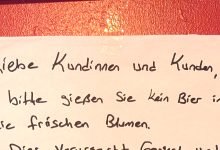 Liebe Kundinnen und Kunden,
bitte gießen Sie kein Bier in
die fröschen Blumen.
Dies verursacht